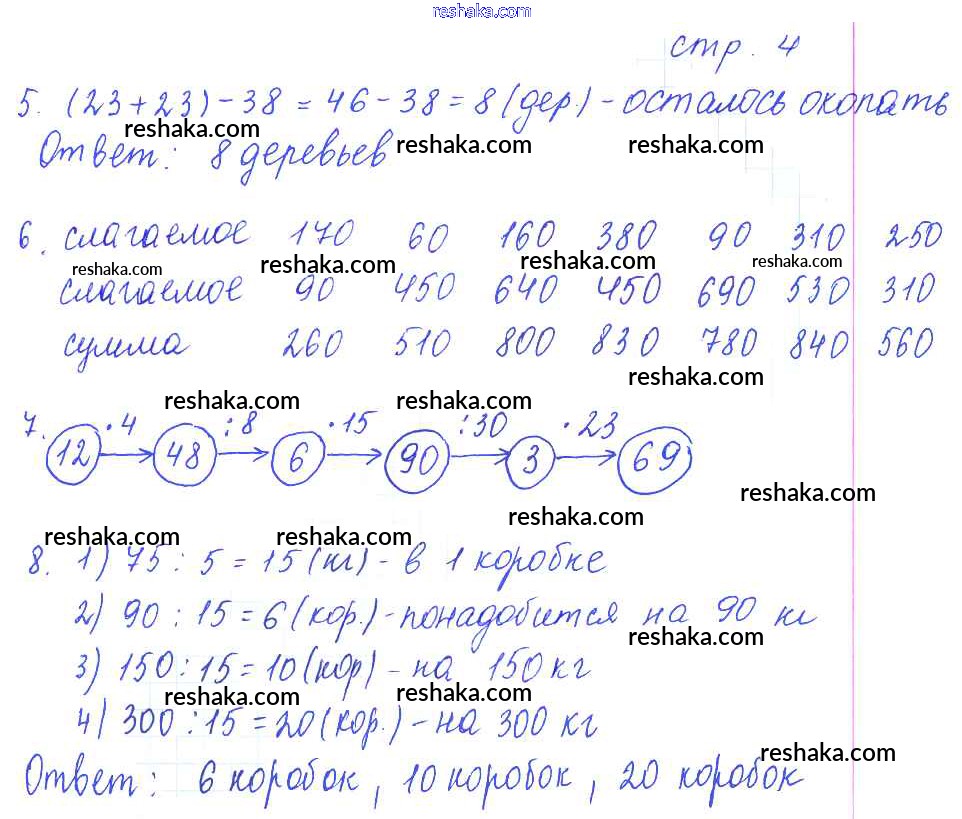 reshaka.com
стр. 4
5. (23+23)-38 = 46-38 = 8 (дер.) - осталось окопать
reshaka.com
Ответ: 8 деревьев reshaka.com reshaka.com
6. слагаемое 170 60 160 380 90 310 250
reshaka.com reshaka.com reshaka.com reshaka.com
слагаемое 90 450 640 450 690 530 310
сумма 260 510 800 830 780 840 560
reshaka.com
reshaka.com reshaka.com
7. ·4 :8 ·15 :30 ·23
12 → 48 → 6 → 90 → 3 → 69
reshaka.com
reshaka.com
reshaka.com reshaka.com
8. 1) 75 : 5 = 15 (кг) - в 1 коробке
2) 90 : 15 = 6 (кор.) - понадобится на 90 кг
reshaka.com
3) 150 : 15 = 10 (кор) - на 150 кг
reshaka.com reshaka.com
4) 300 : 15 = 20 (кор.) - на 300 кг
reshaka.com
Ответ: 6 коробок, 10 коробок, 20 коробок